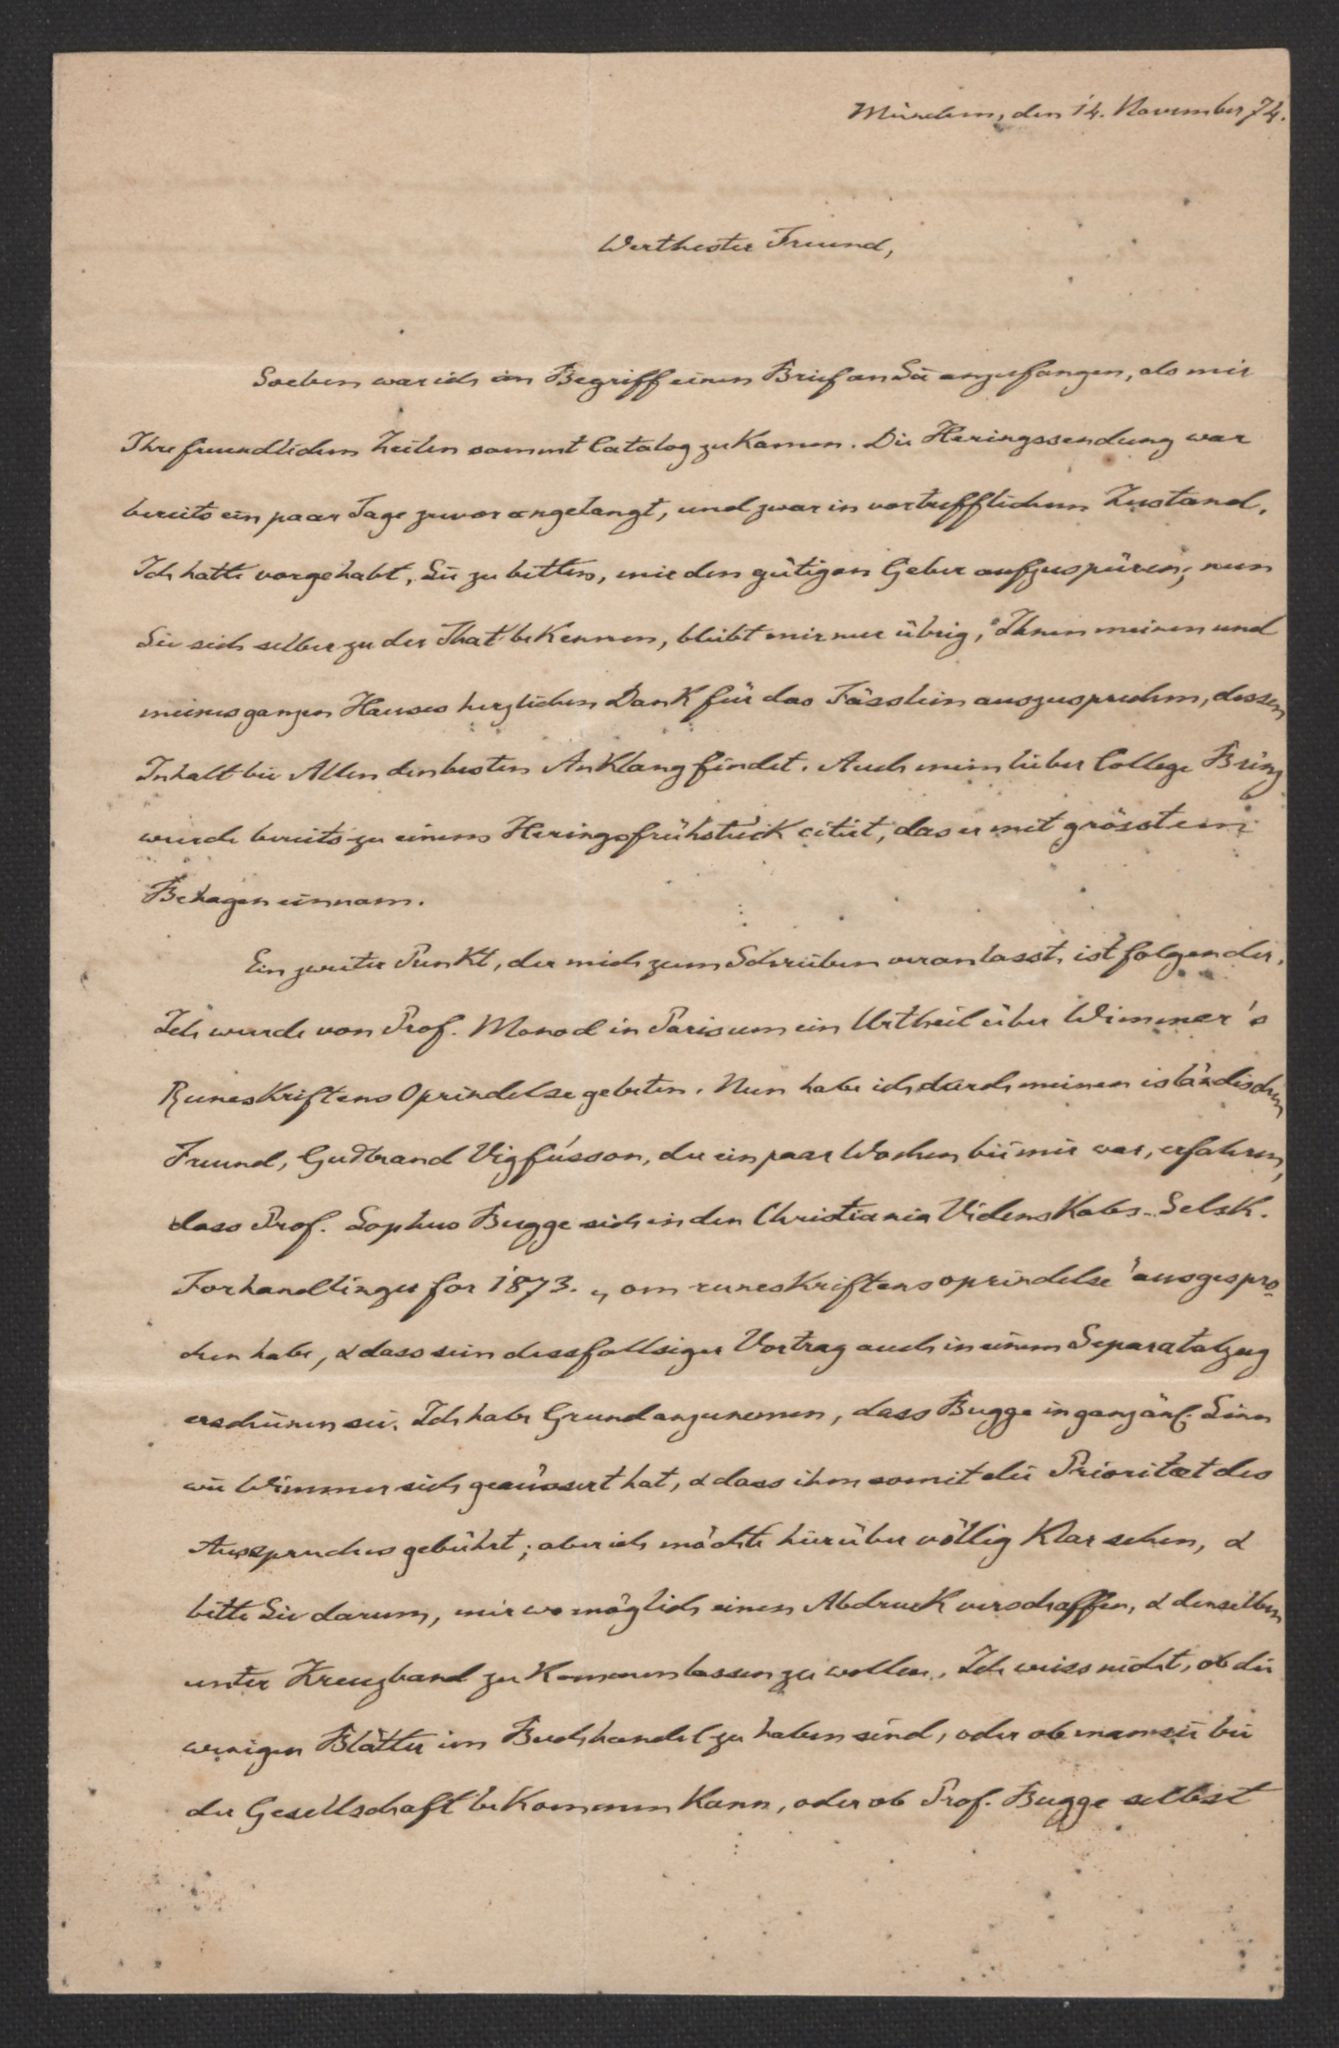 München, den 14. November 74.
Werthester Freund,
Soeben war ich im Begriff einen Brief an Sie anzufangen, als mir
Ihre freundlichen Zeilen sammt Catalog zu kamen. Die Heringssendung war
bereits ein paar Tage zuvor angelangt, und zwar in vortrefflichem Zustand.
Ich hatte vorgehabt, Sie zu bitten, mir den gütigen Geber aufzuspüren; nun
Sie sich selber zu der That bekennen, bleibt mir nur übrig, Ihnen meinen und
meines ganzen Hauses herzlichen Dank für das Fässlein auszusprechen, dessen
Inhalt bei Allen den besten Anklang findet. Auch mein lieber College Brinz
wurde bereits zu einem Heringsfrühstück citirt, das er mit grösstem
Behagen einnam.
Ein zweiter Punkt, der mich zum Schreiben veranlasst, ist folgender.
Ich wurde von Prof. Monod in Paris um ein Urtheil über Wimmer's
Runeskriftens Oprindelse gebeten. Nun habe ich durch meinen isländischen
Freund, Guðbrand Vigfússon, der ein paar Wochen bei mir war, erfahren,
dass Prof. Sophus Bugge sich in den Christiania Videnskabs-Selsk.
Forhandlinger for 1873. „om runeskriftens oprindelse" ausgespro-
chen habe, & dass sein dessfallsiger Vortrag auch in einem Separatabzug
erschienen sei. Ich habe Grund anzunemen, dass Bugge in ganz änl. Sinn
wie Wimmer sich geäussert hat, & dass ihm somit die Priorität des
Ausspruches gebührt; aber ich möchte hierüber völlig klar sehen, &
bitte Sie darum, mir womöglich einen Abdruck verschaffen, & denselben
unter Kreuzband zu kommen lassen zu wollen. Ich weiss nicht, ob die
wenigen Blätter im Buchhandel zu haben sind, oder ob man sie bei
der Gesellschaft bekommen kann, oder ob Prof. Bugge selbst